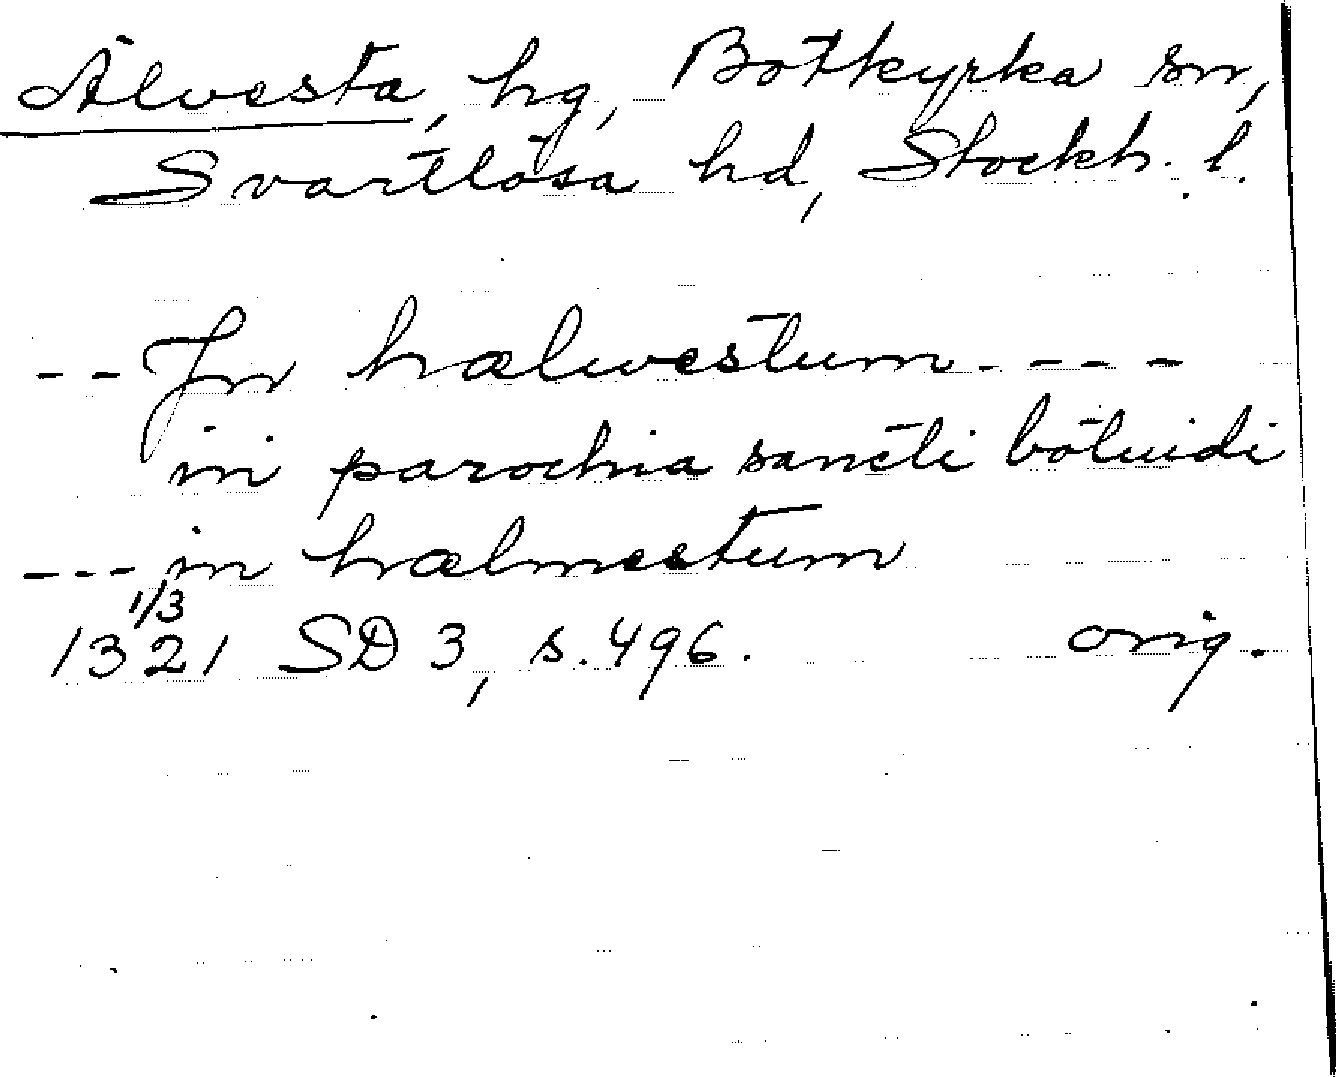 Älvesta, hg, Botkyrka sn,
Svartlösa hd, Stockh. l.
-- Jn hælwestum ----
in parochia sancti bötuidi
--- in hælmestum
1/3
1321 SD 3, s. 496. orig.